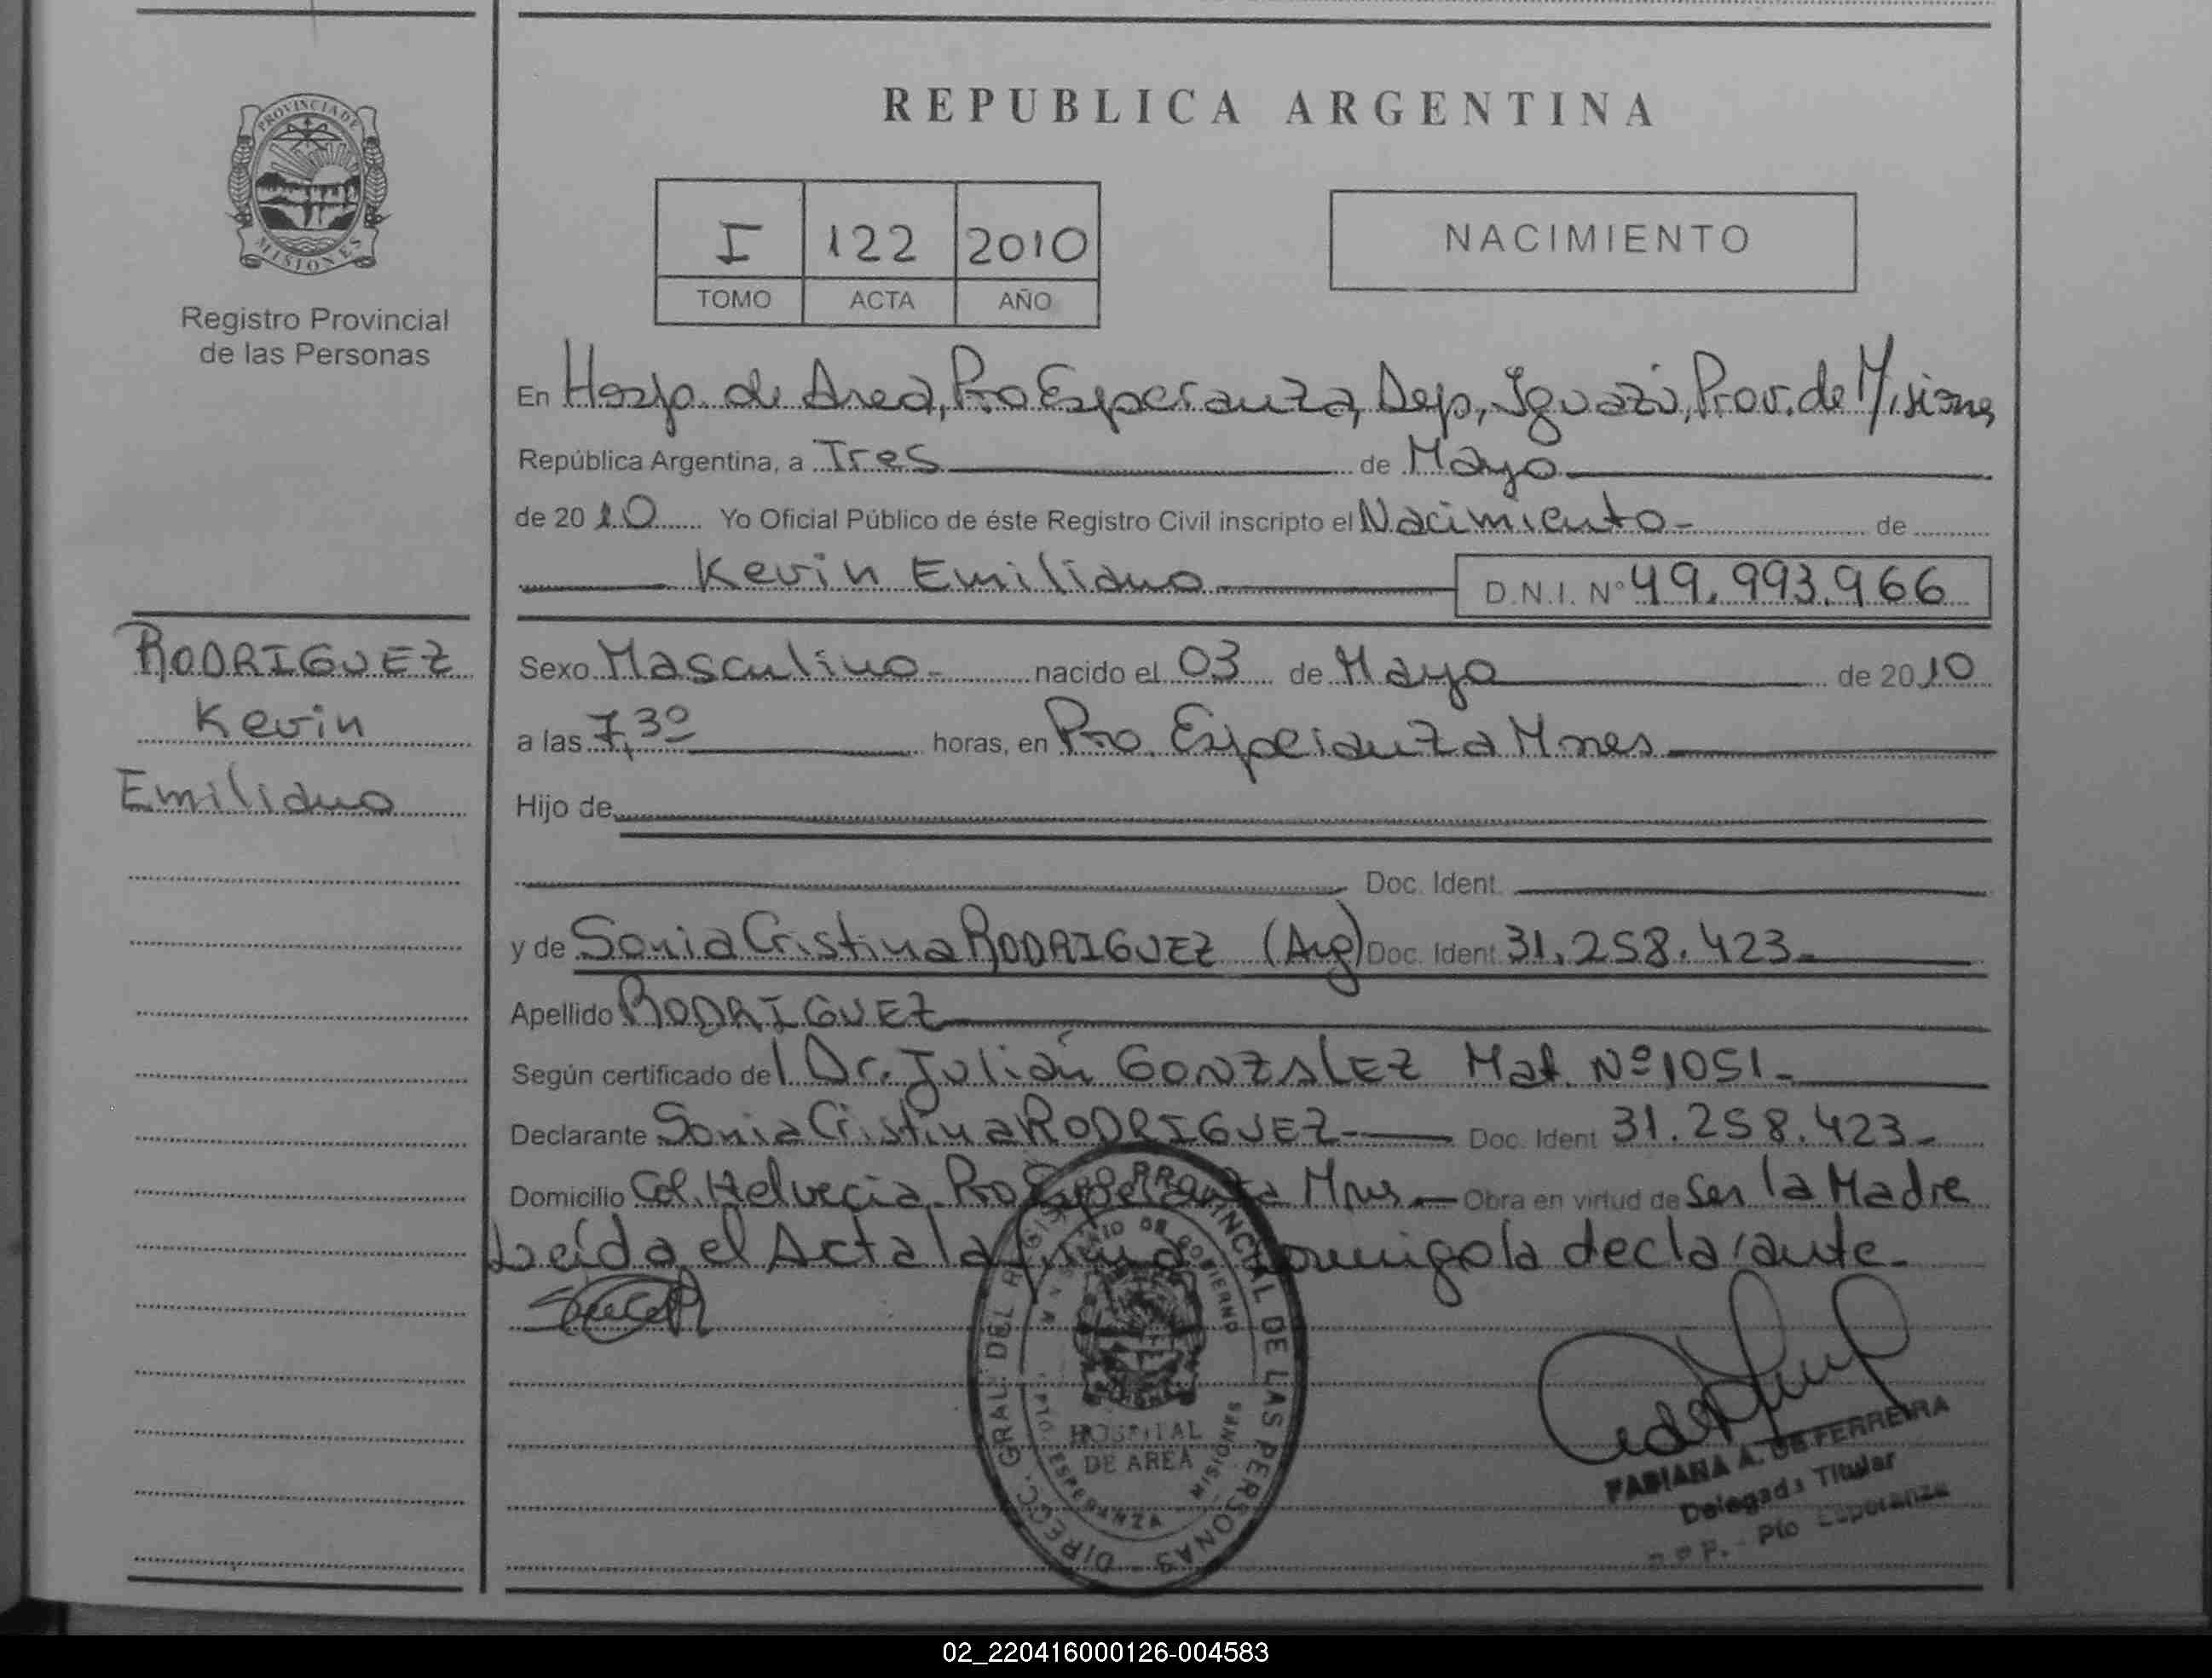 PROVINCIA DE
MISIONES
Registro Provincial
de las Personas
RODRIGUEZ
Kevin
Emiliano
REPUBLICA ARGENTINA
I 122 2010
TOMO ACTA AÑO
NACIMIENTO
En Hosp. de Area, Pto Esperanza, Dep, Iguazú, Prov. de Misiones
República Argentina, a Tres de Mayo
de 2010 Yo Oficial Público de éste Registro Civil inscripto el Nacimiento - de
Kevin Emiliano D.N.I. N° 49.993.966
Sexo Masculino - nacido el 03 de Mayo de 2010
a las 7,30 horas, en Pto. Esperanza Mnes
Hijo de
Doc. Ident.
y de Sonia Cristina RODRIGUEZ (Arg) Doc. Ident. 31.258.423-
Apellido RODRIGUEZ
Según certificado del Dr. Julián GONZALEZ Mat. Nº 1051-
Declarante Sonia Cristina RODRIGUEZ Doc. Ident. 31.258.423-
Domicilio Col. Helvecia Pto Esperanza Mnes - Obra en virtud de Ser la Madre
Leída el Acta la firma conmigo la declarante-
DIRECC. GRAL. DEL REGIST. PROVINCIAL DE LAS PERSONAS
MINISTERIO DE GOBIERNO
HOSPITAL
DE AREA
PTO. ESPERANZA - MISIONES
FABIANA A. DE FERREIRA
Delegada Titular
Pto Esperanza
02_220416000126-004583